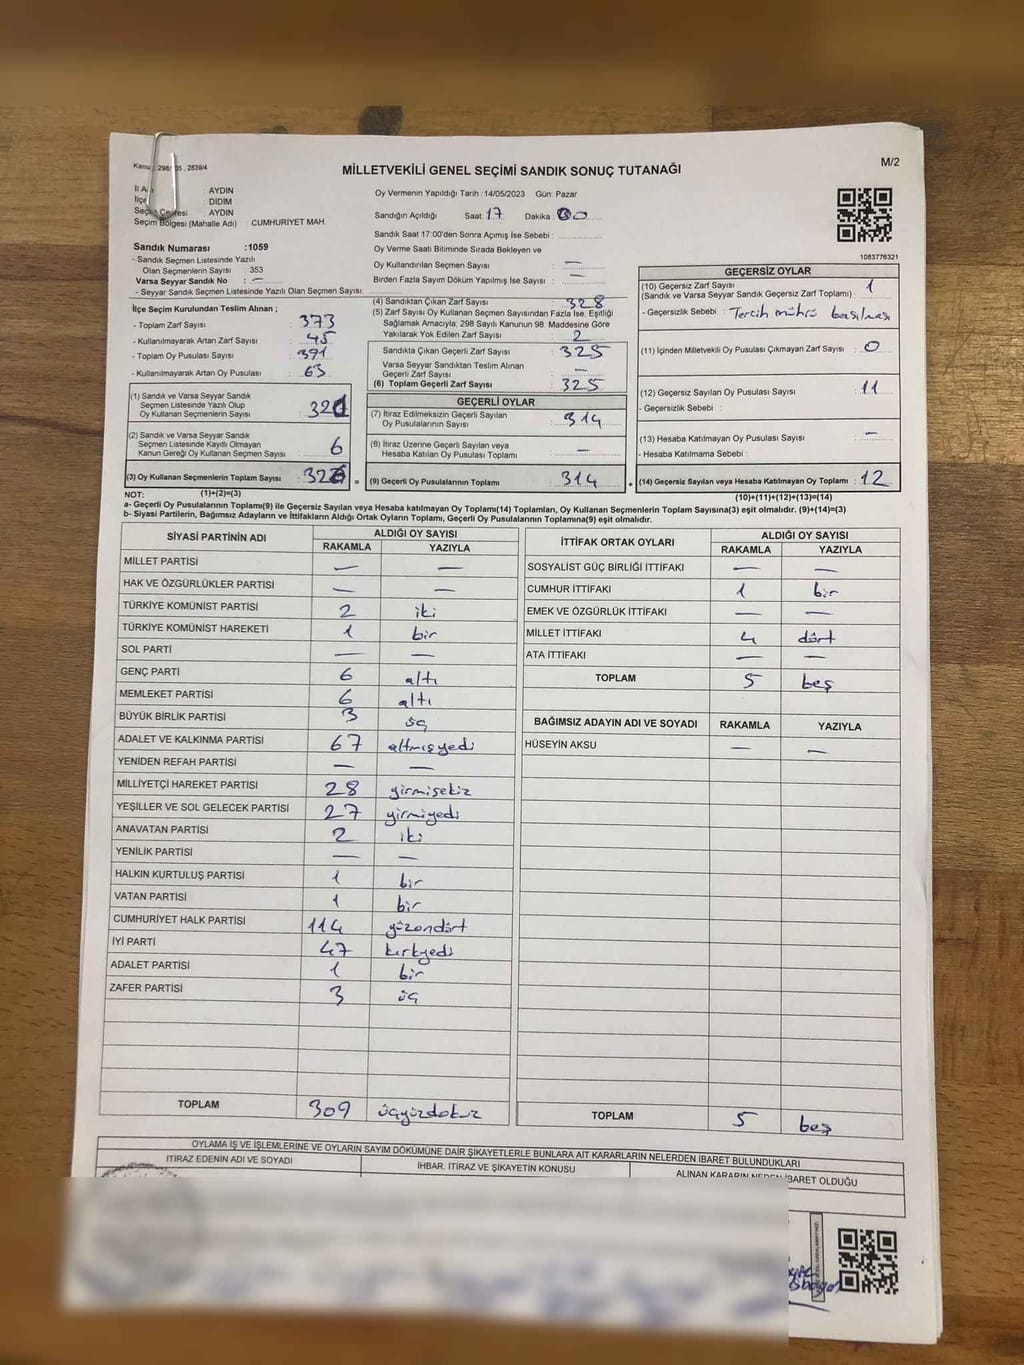 Kanun: 298/105, 2839/4
MİLLETVEKİLİ GENEL SEÇİMİ SANDIK SONUÇ TUTANAĞI
M/2
İl Adı : AYDIN
İlçe : DİDİM
Seçim Çevresi : AYDIN
Seçim Bölgesi (Mahalle Adı) : CUMHURİYET MAH.
Sandık Numarası :1059
- Sandık Seçmen Listesinde Yazılı
Olan Seçmenlerin Sayısı : 353
Varsa Seyyar Sandık No : —
- Seyyar Sandık Seçmen Listesinde Yazılı Olan Seçmen Sayısı:
Oy Vermenin Yapıldığı Tarih : 14/05/2023 Gün: Pazar
Sandığın Açıldığı Saat: 17 Dakika :
Sandık Saat 17:00'den Sonra Açımış İse Sebebi :
Oy Verme Saati Bitiminde Sırada Bekleyen ve
Oy Kullandırılan Seçmen Sayısı : —
Birden Fazla Sayım Döküm Yapılmış İse Sayısı : —
1083776321
İlçe Seçim Kurulundan Teslim Alınan ;
- Toplam Zarf Sayısı : 373
- Kullanılmayarak Artan Zarf Sayısı : 45
- Toplam Oy Pusulası Sayısı : 391
- Kullanılmayarak Artan Oy Pusulası : 63
(1) Sandık ve Varsa Seyyar Sandık
Seçmen Listesinde Yazılı Olup
Oy Kullanan Seçmenlerin Sayısı :
(2) Sandık ve Varsa Seyyar Sandık
Seçmen Listesinde Kayıtlı Olmayan
Kanun Gereği Oy Kullanan Seçmen Sayısı : 6
(3) Oy Kullanan Seçmenlerin Toplam Sayısı : 326 =
(4) Sandıktan Çıkan Zarf Sayısı : 328
(5) Zarf Sayısı Oy Kullanan Seçmen Sayısından Fazla İse, Eşitliği
Sağlamak Amacıyla, 298 Sayılı Kanunun 98. Maddesine Göre
Yakılarak Yok Edilen Zarf Sayısı : 2
Sandıkta Çıkan Geçerli Zarf Sayısı : 325
Varsa Seyyar Sandıktan Teslim Alınan
Geçerli Zarf Sayısı : —
(6) Toplam Geçerli Zarf Sayısı : 325
GEÇERLİ OYLAR
(7) İtiraz Edilmeksizin Geçerli Sayılan
Oy Pusulalarının Sayısı : 314
(8) İtiraz Üzerine Geçerli Sayılan veya
Hesaba Katılan Oy Pusulası Toplamı : —
(9) Geçerli Oy Pusulalarının Toplamı : 314 +
GEÇERSİZ OYLAR
(10) Geçersiz Zarf Sayısı : 1
(Sandık ve Varsa Seyyar Sandık Geçersiz Zarf Toplamı)
- Geçersizlik Sebebi : Tercih mührü basılması
(11) İçinden Milletvekili Oy Pusulası Çıkmayan Zarf Sayısı : 0
(12) Geçersiz Sayılan Oy Pusulası Sayısı : 11
- Geçersizlik Sebebi :
(13) Hesaba Katılmayan Oy Pusulası Sayısı : —
- Hesaba Katılmama Sebebi :
(14) Geçersiz Sayılan veya Hesaba Katılmayan Oy Toplamı : 12
NOT: (1)+(2)=(3)
(10)+(11)+(12)+(13)=(14)
a- Geçerli Oy Pusulaları Toplamı(9) ile Geçersiz Sayılan veya Hesaba katılmayan Oy Toplamı(14) Toplamları, Oy Kullanan Seçmenlerin Toplam Sayısına(3) eşit olmalıdır. (9)+(14)=(3)
b- Siyasi Partilerin, Bağımsız Adayların ve İttifakların Aldığı Ortak Oyların Toplamı, Geçerli Oy Pusulalarının Toplamına(9) eşit olmalıdır.
SİYASİ PARTİNİN ADI ALDIĞI OY SAYISI
RAKAMLA YAZIYLA
MİLLET PARTİSİ — —
HAK VE ÖZGÜRLÜKLER PARTİSİ — —
TÜRKİYE KOMÜNİST PARTİSİ 2 iki
TÜRKİYE KOMÜNİST HAREKETİ 1 bir
SOL PARTİ — —
GENÇ PARTİ 6 altı
MEMLEKET PARTİSİ 6 altı
BÜYÜK BİRLİK PARTİSİ 3 üç
ADALET VE KALKINMA PARTİSİ 67 altmışyedi
YENİDEN REFAH PARTİSİ — —
MİLLİYETÇİ HAREKET PARTİSİ 28 yirmisekiz
YEŞİLLER VE SOL GELECEK PARTİSİ 27 yirmiyedi
ANAVATAN PARTİSİ 2 iki
YENİLİK PARTİSİ — —
HALKIN KURTULUŞ PARTİSİ 1 bir
VATAN PARTİSİ 1 bir
CUMHURİYET HALK PARTİSİ 114 yüzondört
İYİ PARTİ 47 kırkyedi
ADALET PARTİSİ 1 bir
ZAFER PARTİSİ 3 üç
TOPLAM 309 üçyüzdokuz
İTTİFAK ORTAK OYLARI ALDIĞI OY SAYISI
RAKAMLA YAZIYLA
SOSYALİST GÜÇ BİRLİĞİ İTTİFAKI — —
CUMHUR İTTİFAKI 1 bir
EMEK VE ÖZGÜRLÜK İTTİFAKI — —
MİLLET İTTİFAKI 4 dört
ATA İTTİFAKI — —
TOPLAM 5 beş
BAĞIMSIZ ADAYIN ADI VE SOYADI RAKAMLA YAZIYLA
HÜSEYİN AKSU — —
TOPLAM 5 beş
OYLAMA İŞ VE İŞLEMLERİNE VE OYLARIN SAYIM DÖKÜMÜNE DAİR ŞİKAYETLERLE BUNLARA AİT KARARLARIN NELERDEN İBARET BULUNDUKLARI
İTİRAZ EDENİN ADI VE SOYADI İHBAR, İTİRAZ VE ŞİKAYETİN KONUSU ALINAN KARARIN NEDEN İBARET OLDUĞU